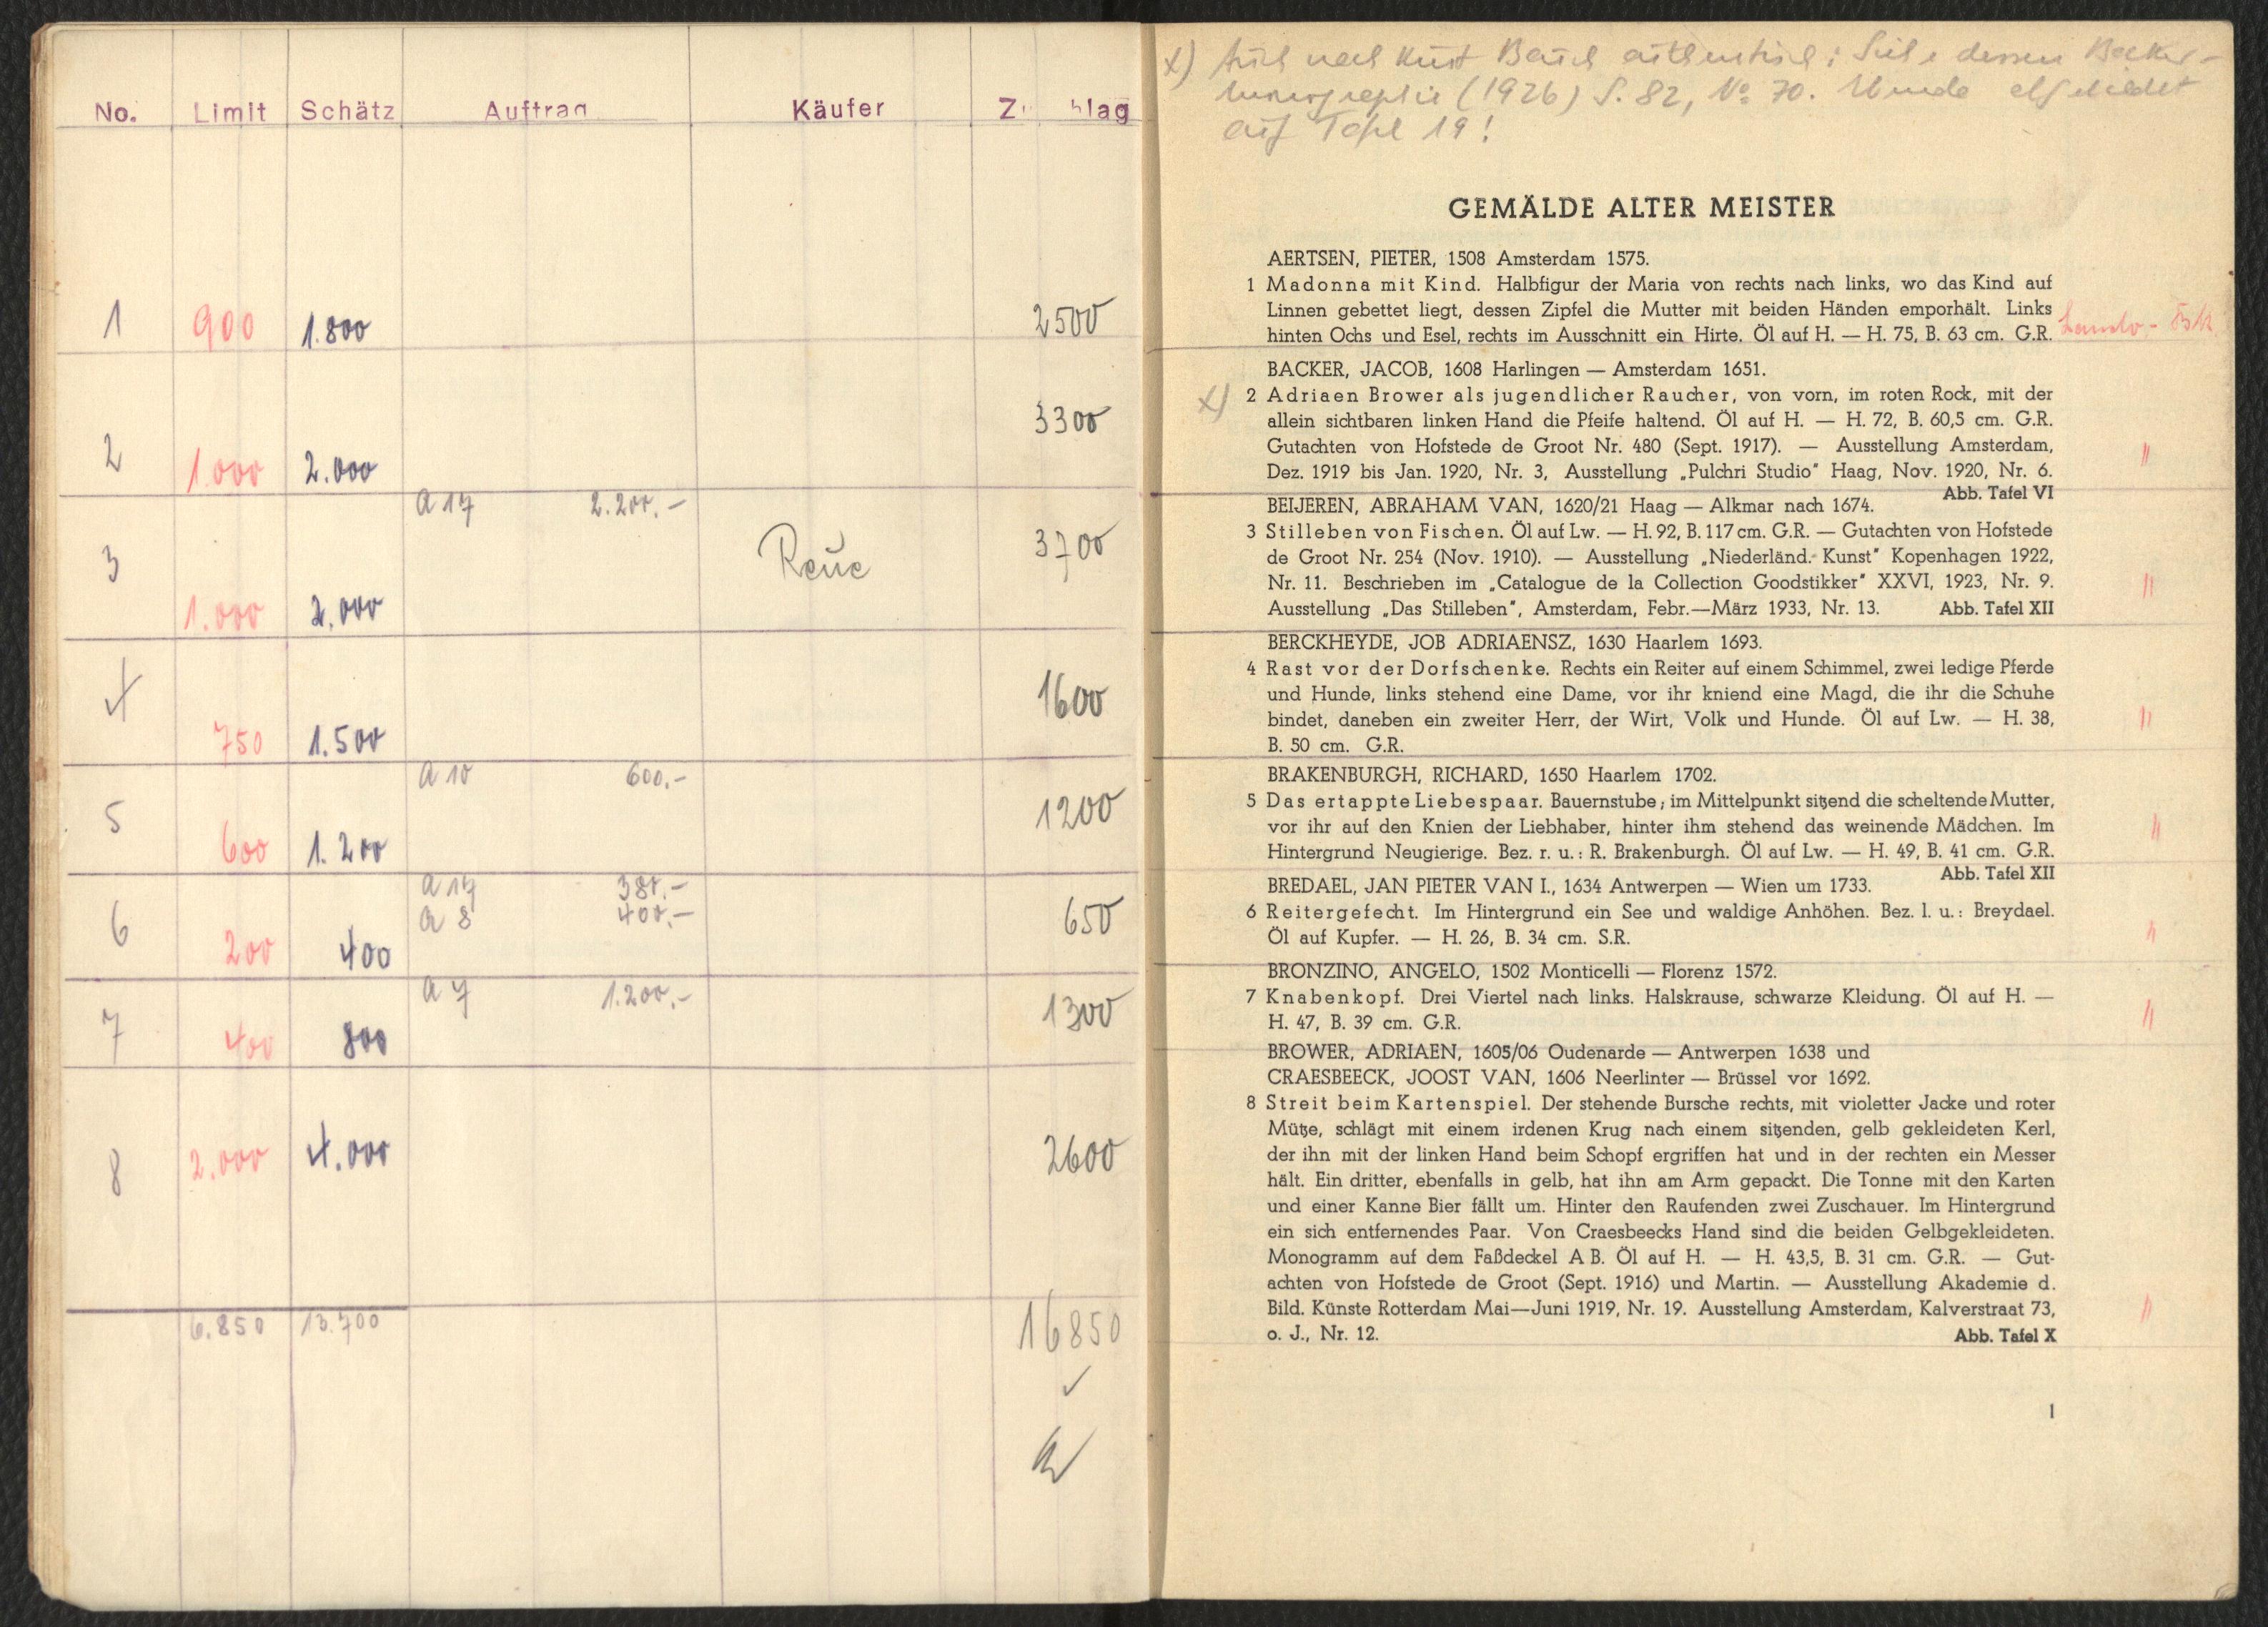 No. Limit Schätz Auftrag Käufer Zuschlag
1 900 1.800 2500
2 1.000 2.000 3300
A 17 2.200.-
3 1.000 2.000 Reue 3700
4 750 1.500 1600
A 10 600.-
5 600 1.200 1200
A 17 380.-
A 8 400.-
6 200 400 650
A 7 1.200.-
7 400 800 1300
8 2.000 4.000 2600
6.850 13.700 16850
x) Auch nach Kurt Bauch authentisch; Siehe dessen Backer-
monographie (1926) S. 82, No 70. Wurde abgebildet
auf Tafel 19!
GEMÄLDE ALTER MEISTER
AERTSEN, PIETER, 1508 Amsterdam 1575.
1 Madonna mit Kind. Halbfigur der Maria von rechts nach links, wo das Kind auf
Linnen gebettet liegt, dessen Zipfel die Mutter mit beiden Händen emporhält. Links
hinten Ochs und Esel, rechts im Ausschnitt ein Hirte. Öl auf H. — H. 75, B. 63 cm. G.R.
BACKER, JACOB, 1608 Harlingen — Amsterdam 1651.
x) 2 Adriaen Brower als jugendlicher Raucher, von vorn, im roten Rock, mit der
allein sichtbaren linken Hand die Pfeife haltend. Öl auf H. — H. 72, B. 60,5 cm. G.R.
Gutachten von Hofstede de Groot Nr. 480 (Sept. 1917). — Ausstellung Amsterdam,
Dez. 1919 bis Jan. 1920, Nr. 3, Ausstellung „Pulchri Studio" Haag, Nov. 1920, Nr. 6. "
Abb. Tafel VI
BEIJEREN, ABRAHAM VAN, 1620/21 Haag — Alkmar nach 1674.
3 Stilleben von Fischen. Öl auf Lw. — H. 92, B. 117 cm. G.R. — Gutachten von Hofstede
de Groot Nr. 254 (Nov. 1910). — Ausstellung „Niederländ. Kunst" Kopenhagen 1922,
Nr. 11. Beschrieben im „Catalogue de la Collection Goodstikker" XXVI, 1923, Nr. 9. "
Ausstellung „Das Stilleben", Amsterdam, Febr.—März 1933, Nr. 13. Abb. Tafel XII
BERCKHEYDE, JOB ADRIAENSZ, 1630 Haarlem 1693.
4 Rast vor der Dorfschenke. Rechts ein Reiter auf einem Schimmel, zwei ledige Pferde
und Hunde, links stehend eine Dame, vor ihr kniend eine Magd, die ihr die Schuhe
bindet, daneben ein zweiter Herr, der Wirt, Volk und Hunde. Öl auf Lw. — H. 38, "
B. 50 cm. G.R.
BRAKENBURGH, RICHARD, 1650 Haarlem 1702.
5 Das ertappte Liebespaar. Bauernstube; im Mittelpunkt sitzend die scheltende Mutter,
vor ihr auf den Knien der Liebhaber, hinter ihm stehend das weinende Mädchen. Im "
Hintergrund Neugierige. Bez. r. u.: R. Brakenburgh. Öl auf Lw. — H. 49, B. 41 cm. G.R.
Abb. Tafel XII
BREDAEL, JAN PIETER VAN I., 1634 Antwerpen — Wien um 1733.
6 Reitergefecht. Im Hintergrund ein See und waldige Anhöhen. Bez. l. u.: Breydael.
Öl auf Kupfer. — H. 26, B. 34 cm. S.R. "
BRONZINO, ANGELO, 1502 Monticelli — Florenz 1572.
7 Knabenkopf. Drei Viertel nach links. Halskrause, schwarze Kleidung. Öl auf H. —
H. 47, B. 39 cm. G.R. "
BROWER, ADRIAEN, 1605/06 Oudenarde — Antwerpen 1638 und
CRAESBEECK, JOOST VAN, 1606 Neerlinter — Brüssel vor 1692.
8 Streit beim Kartenspiel. Der stehende Bursche rechts, mit violetter Jacke und roter
Mütze, schlägt mit einem irdenen Krug nach einem sitzenden, gelb gekleideten Kerl,
der ihn mit der linken Hand beim Schopf ergriffen hat und in der rechten ein Messer
hält. Ein dritter, ebenfalls in gelb, hat ihn am Arm gepackt. Die Tonne mit den Karten
und einer Kanne Bier fällt um. Hinter den Raufenden zwei Zuschauer. Im Hintergrund
ein sich entfernendes Paar. Von Craesbeecks Hand sind die beiden Gelbgekleideten.
Monogramm auf dem Faßdeckel A B. Öl auf H. — H. 43,5, B. 31 cm. G.R. — Gut-
achten von Hofstede de Groot (Sept. 1916) und Martin. — Ausstellung Akademie d.
Bild. Künste Rotterdam Mai—Juni 1919, Nr. 19. Ausstellung Amsterdam, Kalverstraat 73, "
o. J., Nr. 12. Abb. Tafel X
1